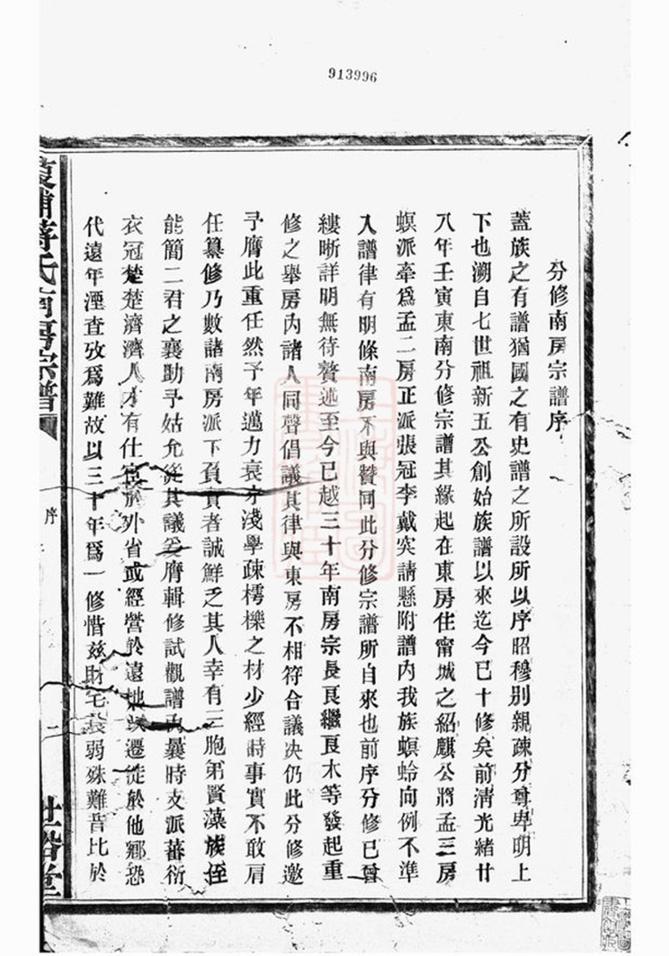 913996
分修南房宗譜序
蓋族之有譜猶國之有史譜之所設所以序昭穆別親疎分尊卑明上
下也溯自七世祖新五公創始族譜以來迄今已十修矣前清光緒廿
八年壬寅東南分修宗譜其緣起在東房住甯城之紹麒公將孟三房
螟派牽爲孟二房正派張冠李戴突請懸附譜內我族螟蛉向例不準
入譜律有明條南房不與贊同此分修宗譜所自來也前序分修已曾
縷晰詳明無待贅述至今已越三十年南房宗長良繼良木等發起重
修之舉房內諸人同聲倡議其律與東房不相符合議決仍此分修邀
予膺此重任然予年邁力衰才淺學疎樗櫟之材少經時事實不敢肩
任纂修乃數諸南房派下負責者誠鮮乏其人幸有三胞弟賢藻族侄
能簡二君之襄助予姑允從其議爰膺輯修試觀譜內曩時支派蕃衍
衣冠楚楚濟濟人才有仕宦於外省或經營於遠地或遷徙於他鄉恐
代遠年湮查攷爲難故以三十年爲一修惜玆財宅衰弱殊難昔比於
蔣氏南房宗譜
序
一
堂